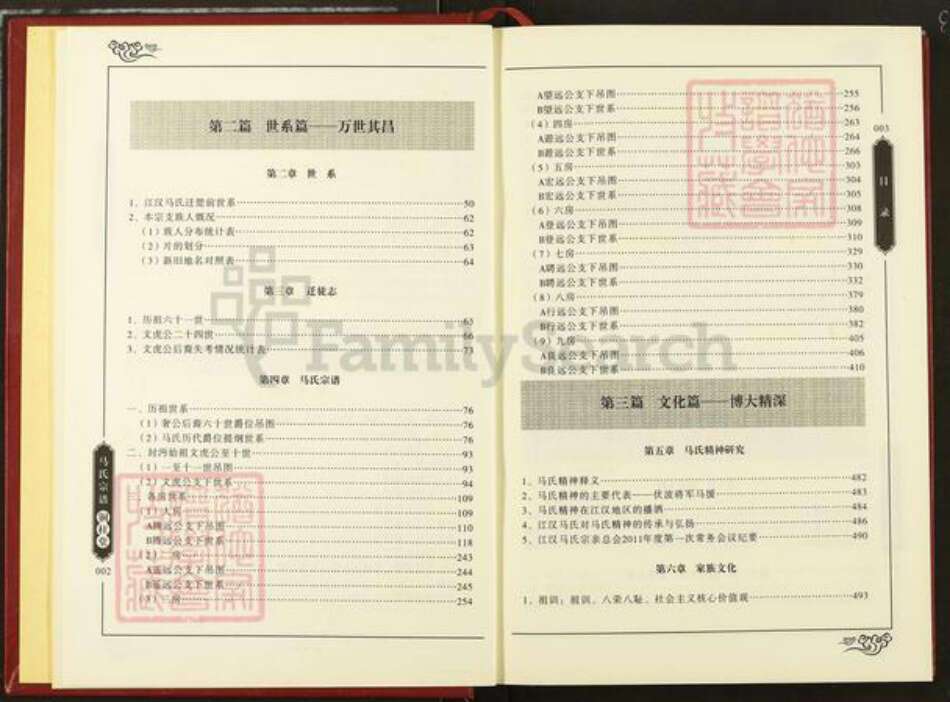 第二篇 世系篇——万世其昌
第二章 世 系
1、江汉马氏迁楚前世系 50
2、本宗支族人概况 62
（1）族人分布统计表 62
（2）片的划分 63
（3）新旧地名对照表 64
第三章 迁徙志
1、历祖六十一世 65
2、文虎公二十四世 66
3、文虎公后裔失考情况统计表 73
第四章 马氏宗谱
一、历祖世系 76
（1）奢公后裔六十世爵位吊图 76
（2）马氏历代爵位提纲世系 76
二、封沔始祖文虎公至十世 93
（1）一至十一世吊图 93
（2）文虎公支下世系 94
各房世系 109
（1）大房 109
远公支下吊图 110
远公支下世系 118
（2） 房 243
远公支下吊图 244
远公支下世系 245
（3） 房 254
马氏宗谱
002
A望远公支下吊图 255
B望远公支下世系 256
（4）四房 263
远公支下吊图 264
远公支下世系 266
（5）五房 303
A宏远公支下吊图 304
B宏远公支下世系 305
（6）六房 308
A登远公支下吊图 309
B登远公支下世系 310
（7）七房 329
A聘远公支下吊图 330
B聘远公支下世系 332
（8）八房 379
A行远公支下吊图 380
B行远公支下世系 382
（9）九房 405
A良远公支下吊图 406
B良远公支下世系 410
第三篇 文化篇——博大精深
第五章 马氏精神研究
1、马氏精神释义 482
2、马氏精神的主要代表——伏波将军马援 483
3、马氏精神在江汉地区的播洒 484
4、江汉马氏对马氏精神的传承与弘扬 486
5、江汉马氏宗亲总会2011年度第一次常务会议纪要 490
第六章 家族文化
1、祖训：祖训、八荣八耻、社会主义核心价值观 493
003
目录
FamilySearch